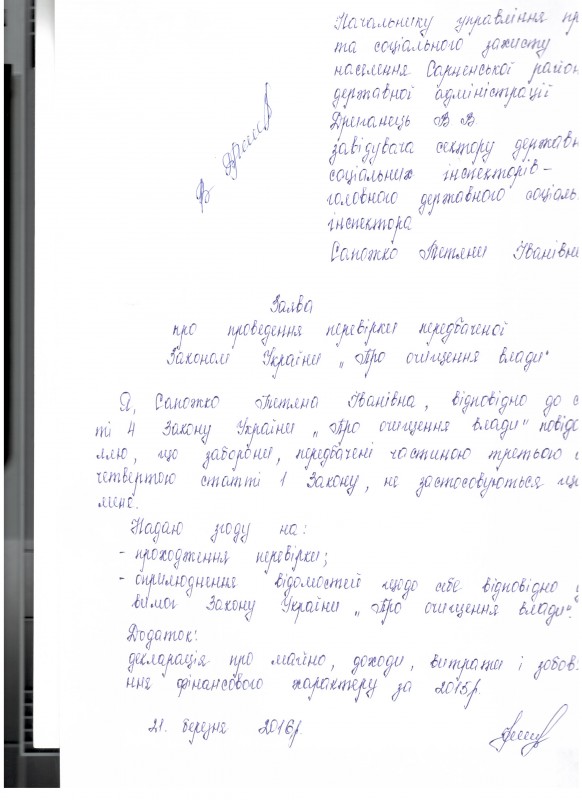 Начальнику управління пр
та соціального захисту
населення Сарненської район
державної адміністрації
Дрепанець В В
завідувача сектору державн
соціальних інспекторів -
головного державного соціаль
інспектора
Сапожко Тетяни Іванівни
Заява
про проведення перевірки передбаченої
Законом України „Про очищення влади"
Я, Сапожко Тетяна Іванівна, відповідно до с
ті 4 Закону України „Про очищення влади" повідо
ляю, що заборони, передбачені частиною третьою
четвертою статті 1 Закону, не застосовуються що
мене.
Надаю згоду на:
- проходження перевірки;
- оприлюднення відомостей щодо себе відповідно
вимог Закону України „Про очищення влади".
Додаток:
декларація про майно, доходи, витрати і зобов
ння фінансового характеру за 2015р.
21. березня 2016р.